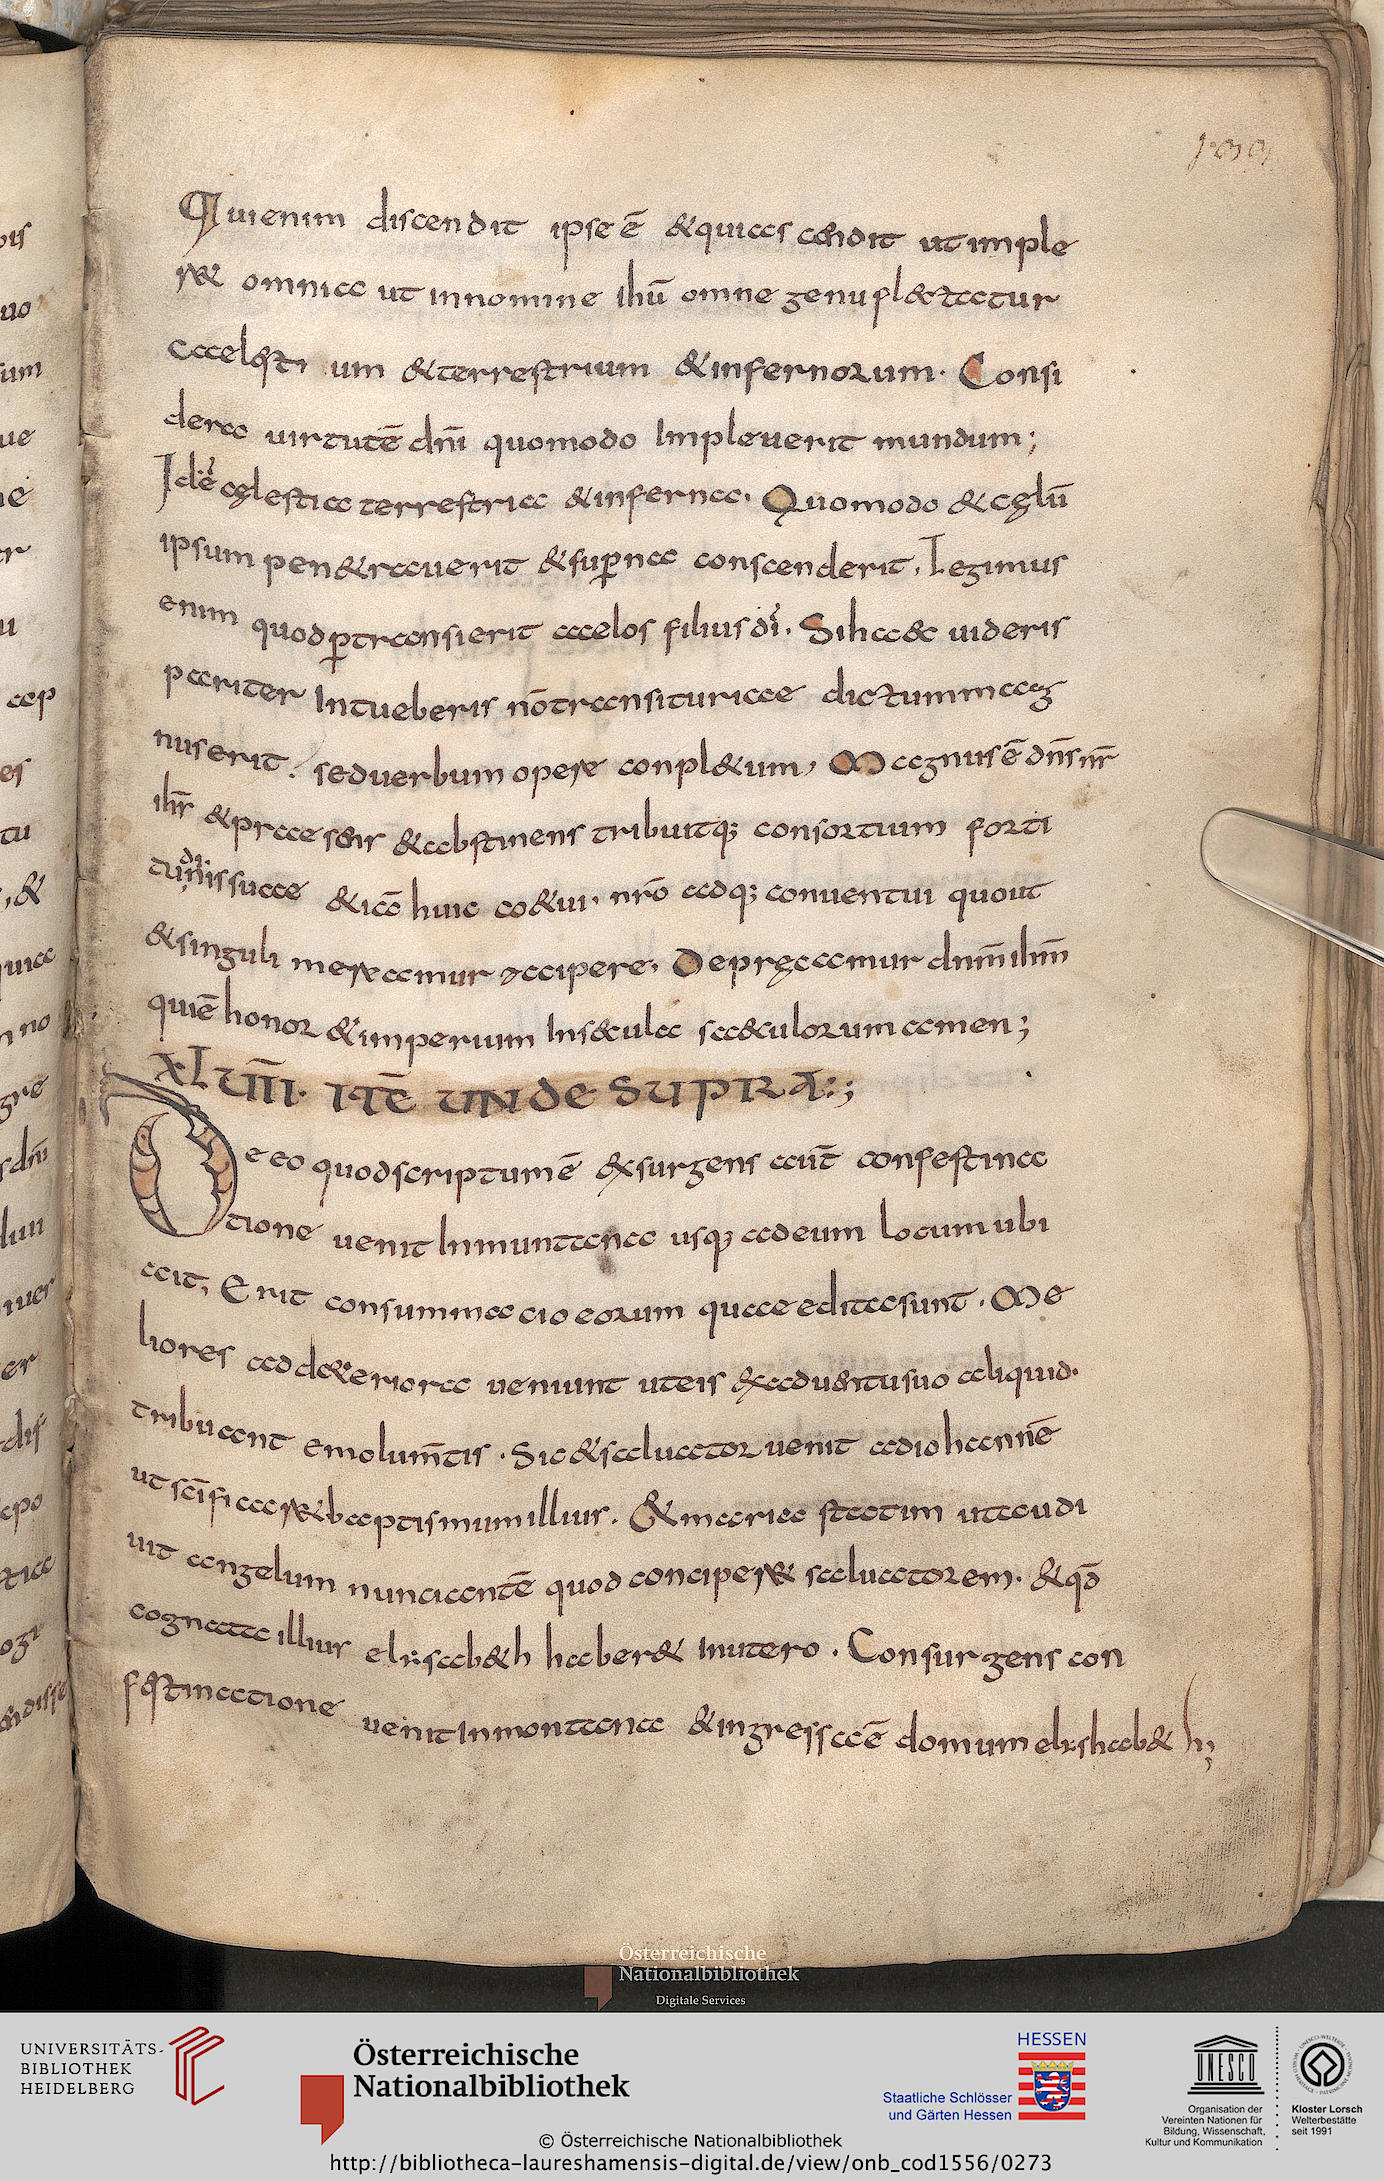 133
Qui enim discendit ipse ē & qui ascendit ut imple
r& omnia ut in nomine ihū omne genu pl&tatur
caelesti um & terrestrium & infernorum · Consi
dera uirtutē dn̄i quomodo Impleuerit mundum ;
Id ē cęlestia terrestria & inferna · Quomodo & cęlū
ipsum pen&rauerit & sup̄na conscenderit, Legimus
enim quod ꝑtransierit caelos filius dī · Si haec uideris
pariter Intueberis nō transitur iae dictum mag
nus erit · sed uerbum opere conpl&um, Magnus ē dn̄s nr̄
ihs̄ & praesens & abstinens tribuitq; consortium forti
tudinis suae & iā huic co&ui · nr̄o adq; conuentui quo ut
& singuli mereamur accipere · Depręcamur dn̄m ihm̄
qui ē honor & imperium In saecula saeculorum amen ;
XLVIII · ITĒ UNDE SUPRA : ;
De eo quod scriptum ē exsurgens aūt confestina
tione uenit In muntana usq; ad eum Locum ubi
ait, Erit consummacio eorum quae edita sunt · Me
liores ad deteriora ueniunt ut eis ex aduentu suo aliquid ·
tribuant emolum̄tis · Sic & saluator uenit ad iohannē
ut sc̄ificar& baptismum illius · & maria statim ut audi
uit angelum nunciantē quod conciper& saluatorem · & qđ
cognata illius elisab&h haber& in utero · Consurgens con
festinatione uenit In montana & ingressa ē domum elishab&h ;
Österreichische
Nationalbibliothek
Digitale Services
UNIVERSITÄTS-
BIBLIOTHEK
HEIDELBERG
Österreichische
Nationalbibliothek
HESSEN
Staatliche Schlösser
und Gärten Hessen
UNESCO
Organisation der
Vereinten Nationen für
Bildung, Wissenschaft,
Kultur und Kommunikation
Kloster Lorsch
Welterbestätte
seit 1991
© Österreichische Nationalbibliothek
http://bibliotheca-laureshamensis-digital.de/view/onb_cod1556/0273